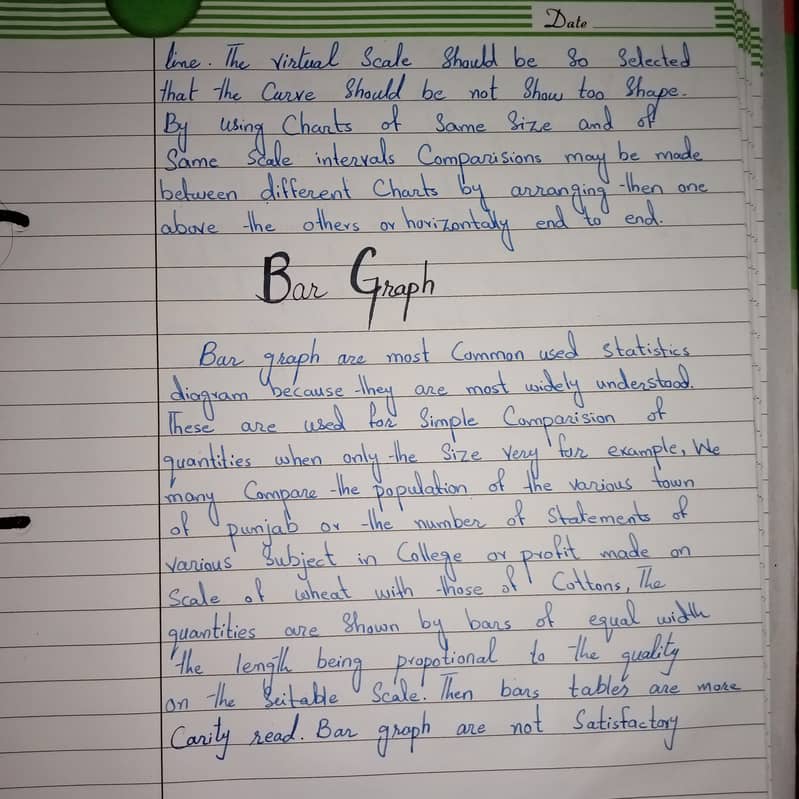 Date
line. The virtual Scale Should be so Selected
that the Curve Should be not Show too Shape.
By using Charts of Same Size and of
Same Scale intervals Comparisions may be made
between different Charts by arranging then one
above the others or horizontally end to end.
Bar Graph
Bar graph are most Common used statistics
diagram because they are most widely understood.
These are used for Simple Comparision of
quantities when only the Size Very for example, We
many Compare the population of the various town
of punjab or the number of Statements of
various Subject in College or profit made on
Scale of wheat with those of Cottons, The
quantities are Shown by bars of equal width
the length being propotional to the quality
on the Seitable Scale. Then bars tables are more
Carity read. Bar graph are not Satisfactory